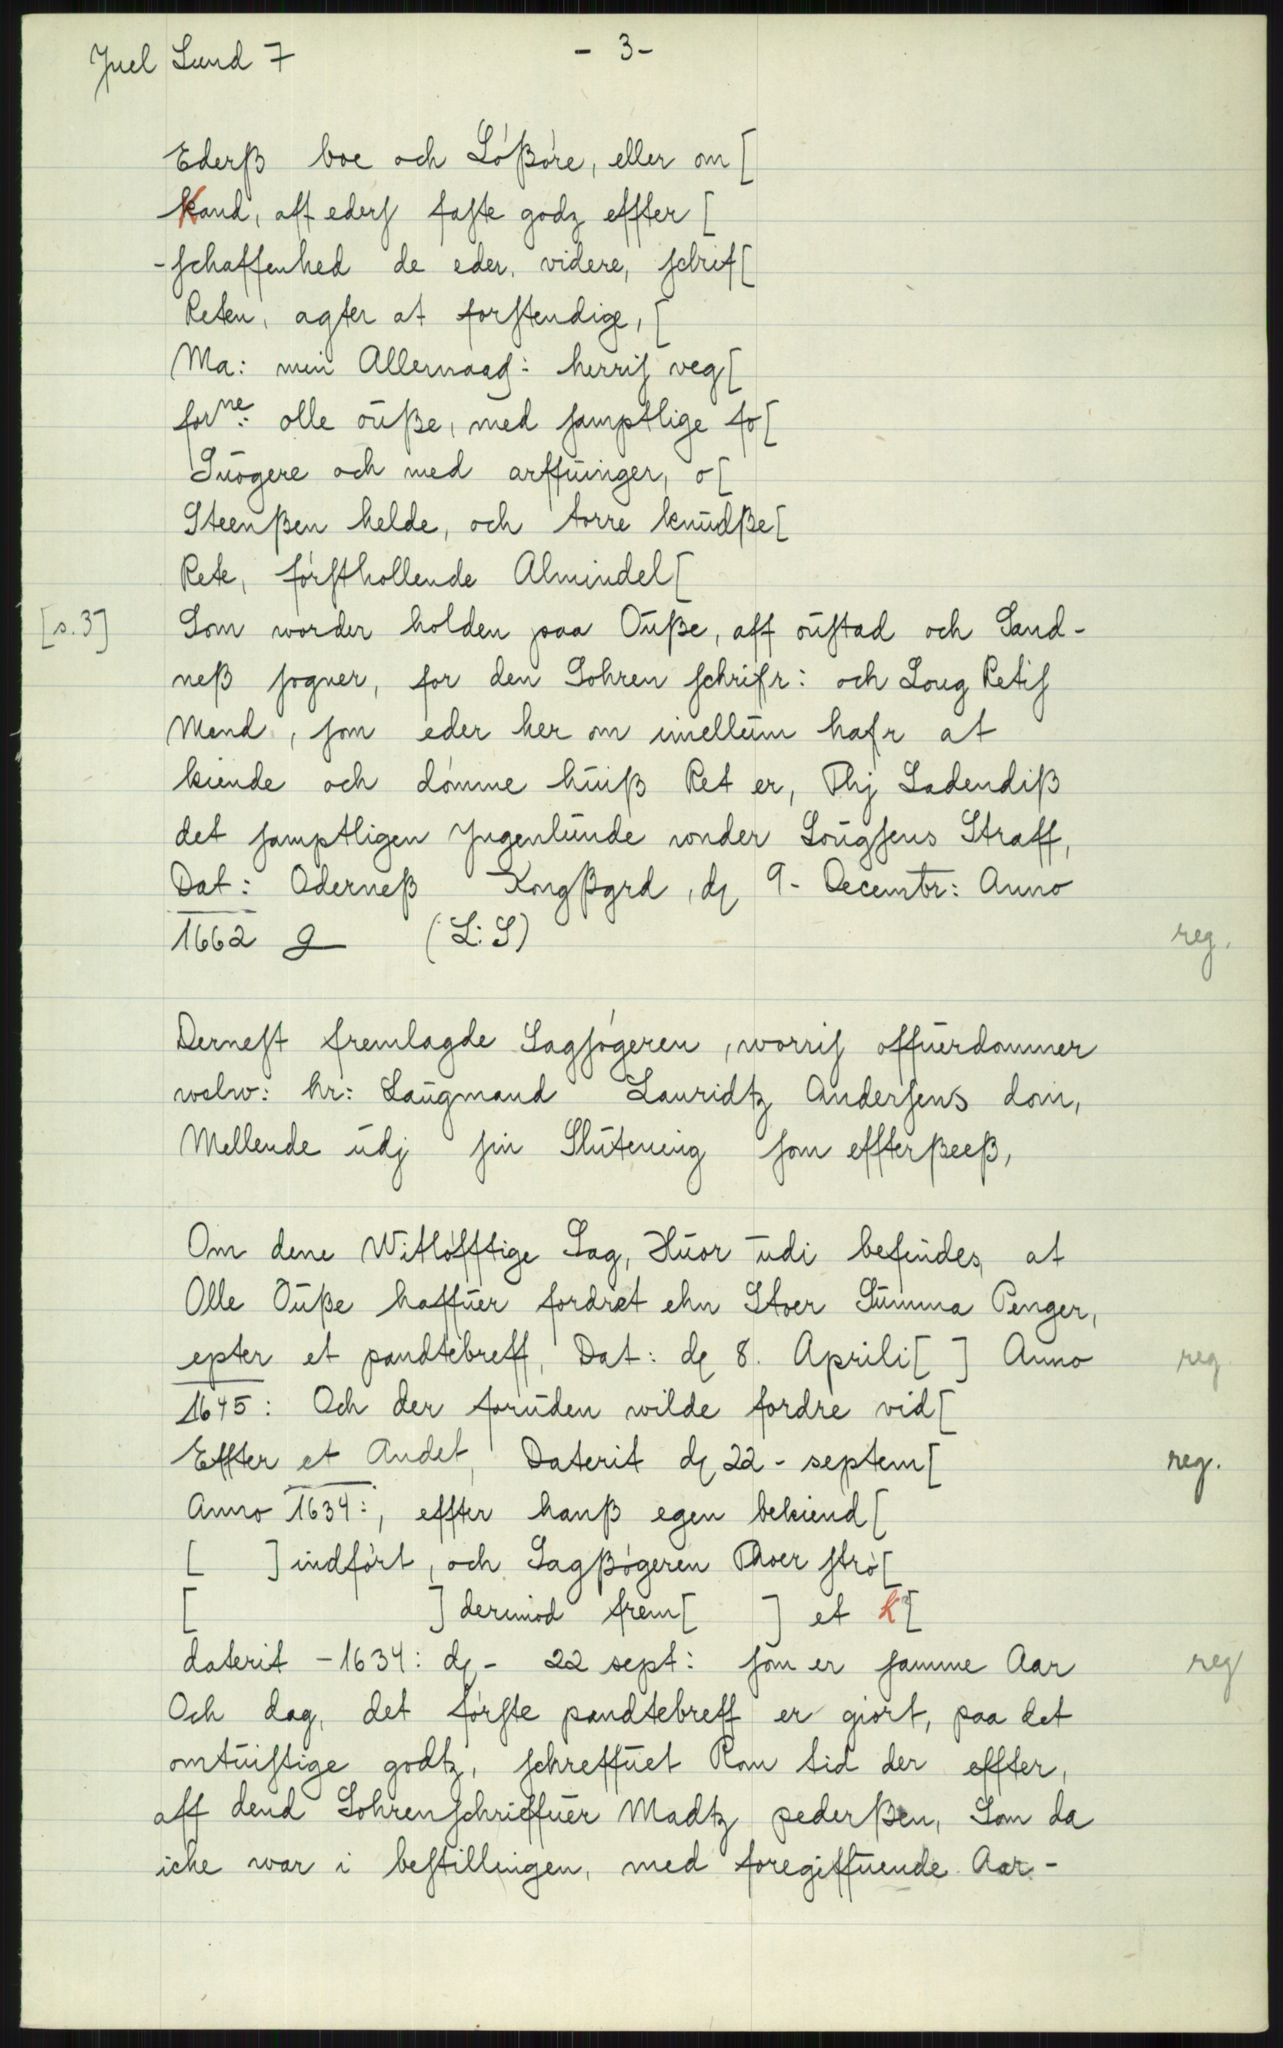 Juel Lund 7 - 3 -
Ederß boe och Lößöre, eller om [
kand, aff ederſ faſte godz effter [
-ſchaffenhed de eder, videre, ſchrif [
Reten, agter at forſtendige, [
Ma: min Allernaaſ: herriſ veg [
forne: olle ouße, med ſamptlige fo [
Suögere och med arffuinger, o [
Steenßen helde, och torre knudße [
Rete, förſthollende Almindel [
[s. 3] Som worder holden paa Ouße, aff ouſtad och Sand-
neß ſogner, for den Sohren ſchrifr: och Loug Retiſ
Mend, ſom eder her om imellum hafr at
kiende och dömme huiß Ret er, Thj Ladendiß
det ſamptligen Jngenlunde vonder Lougſens Straff,
Dat: Oderneß Kongßgrd, dȩ 9 - Decembr: Anno
1662 (L: S) reg.
Derneſt fremlagde Sagſögeren, worriſ offuerdommer
welw: hr: Laugmand Lauridtz Anderſens dom,
Mellende udj ſin Slutening ſom effterßeeß,
Om dene Witlöfftige Sag, Huor udi befindes at
Olle Ouße haffuer fordret ehn Stoer Summa Penger,
epter et pandtebreff, Dat: dȩ 8. Aprili [ ] Anno reg
1645: Och der foruden wilde fordre vid [
Effter et Andet, Daterit dȩ 22 - septem [ reg.
Anno 1634:, effter hanß egen bekiend [
[ ] indfört, och Sagßögeren Thoer ſtrö [
[ ] derimod frem [ ] et k [
daterit - 1634: dȩ - 22 sept: ſom er ſamme Aar reg
Och dag, det förſte pandtebreff er giort, paa det
omtuiſtige godtz, ſchreffuet Rom tid der effter,
aff dend Sohrenſchrieffuer Madtz pederßen, Som da
icke war i beſtillingen, med foregiffuende Aar-